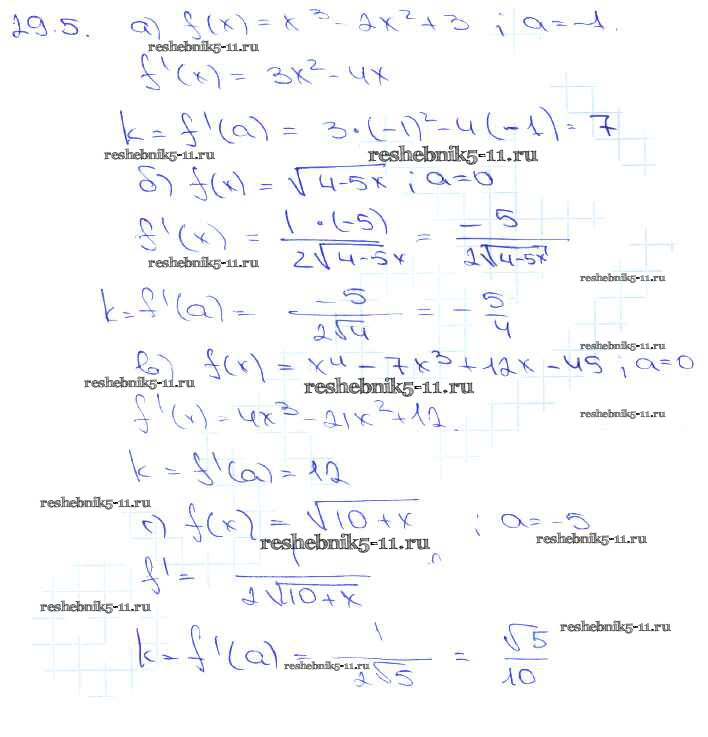 29.5. а) f(x) = x³ - 2x² + 3 ; a = -1.
reshebnik5-11.ru
f'(x) = 3x² - 4x
k = f'(a) = 3·(-1)² - 4(-1) = 7
reshebnik5-11.ru reshebnik5-11.ru
б) f(x) = √(4-5x) ; a = 0
f'(x) = 1·(-5)/(2√(4-5x)) = -5/(2√(4-5x))
reshebnik5-11.ru
reshebnik5-11.ru
k = f'(a) = -5/(2√4) = -5/4
reshebnik5-11.ru
в) f(x) = x⁴ - 7x³ + 12x - 45 ; a = 0
reshebnik5-11.ru reshebnik5-11.ru
f'(x) = 4x³ - 21x² + 12.
reshebnik5-11.ru
k = f'(a) = 12
reshebnik5-11.ru
г) f(x) = √(10+x) ; a = -5
reshebnik5-11.ru reshebnik5-11.ru
f' = 1/(2√(10+x))
reshebnik5-11.ru
reshebnik5-11.ru
k = f'(a) = 1/(2√5) = √5/10
reshebnik5-11.ru